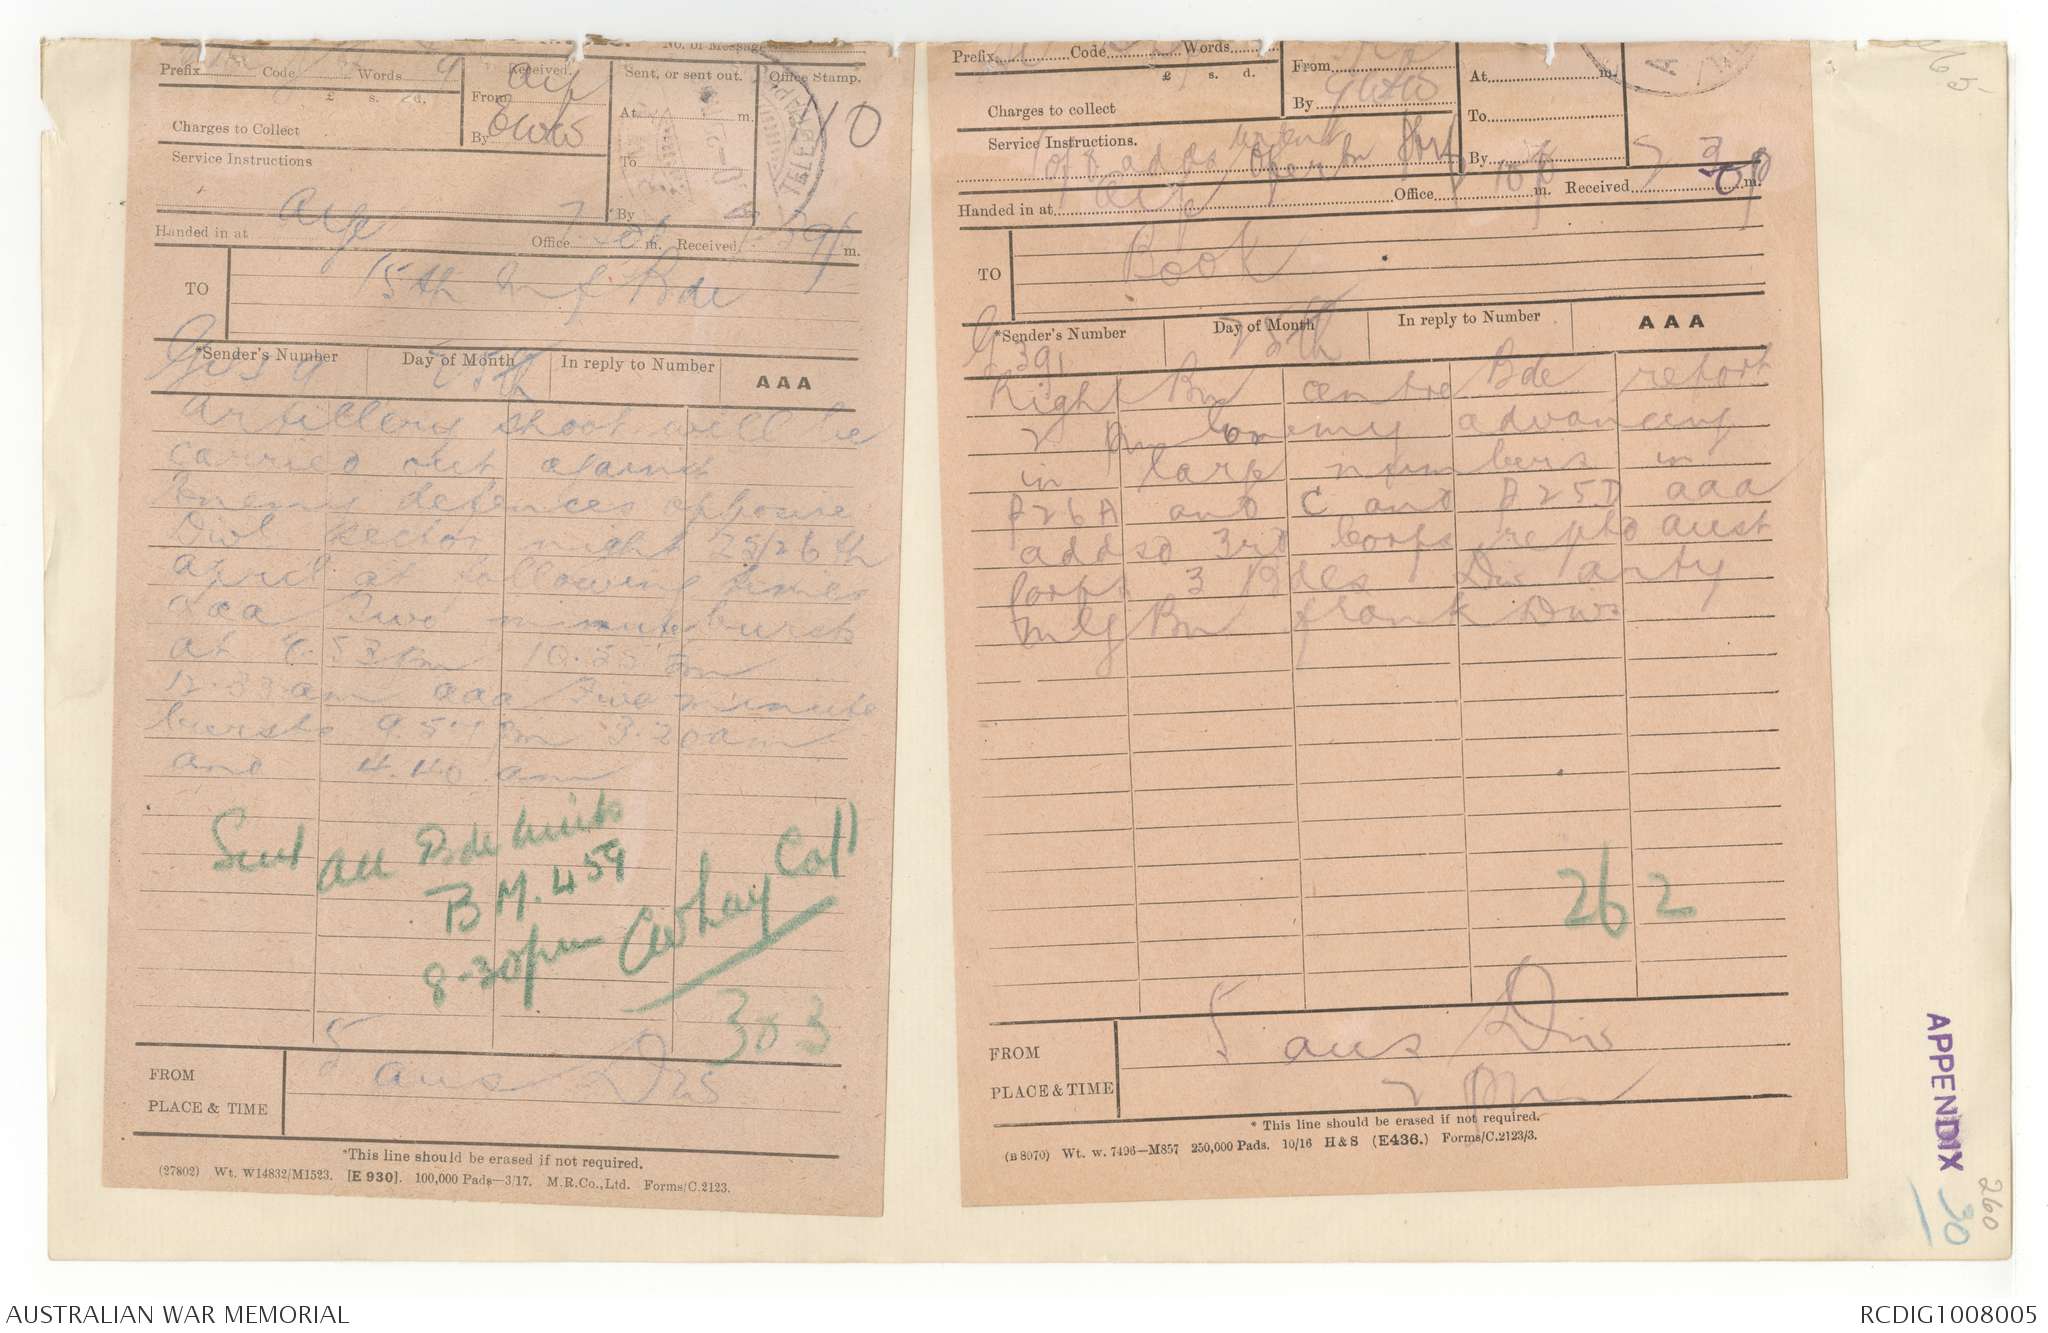 No. of Message
Prefix Code Words
Received.
Sent, or sent out.
Office Stamp.
£ s. d.
From
At m.
Charges to Collect
By
To
10
Service Instructions
*By
Handed in at Office m. Received m.
TO
15th Inf Bde
*Sender's Number
Day of Month
In reply to Number
AAA
25th
Artillery shoot will be
carried out against
Enemy defences opposite
Divl Sector night 25/26th
April at following times
aaa Two minute bursts
at pm 10.33 pm
12.33 am aaa Two minute
bursts 9.57 pm 3.20 am
and 4.40 am
Sent all Bde Units
B M. 459
8-30 pm
303
FROM
PLACE & TIME
5 aus Div
*This line should be erased if not required.
(27802) Wt. W14832/M1523. [E 930]. 100,000 Pads—3/17. M.R.Co.,Ltd. Forms/C.2123.
Prefix Code Words
£ s. d.
From
At m.
Charges to collect
By
To
Service Instructions.
By
Handed in at Office m. Received m.
TO
Book
*Sender's Number
Day of Month
In reply to Number
AAA
G 391
25th
Right Bn centre Bde report
2 pm enemy advancing
in large numbers in
P26A and C and P25D aaa
addsd 3rd Corps reptd Aust
Corps 3 Bdes Div arty
mlg Bn flank Divs
262
FROM
PLACE & TIME
5 aus Div
2 pm
* This line should be erased if not required.
(B 8970) Wt. w. 7496—M857 250,000 Pads. 10/16 H & S (E436.) Forms/C.2123/3.
APPENDIX
30
260
AUSTRALIAN WAR MEMORIAL
RCDIG1008005